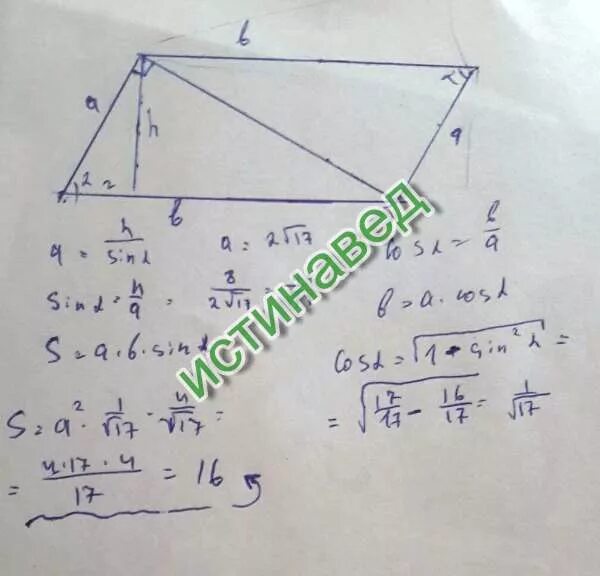 b
a
h
α
2
α
a
b
a = h/sin α
a = 2√17
cos α = b/a
sin α = h/a = 8/2√17 =
b = a · cos α
S = a · b · sin α
cos α = √1 - sin² α =
= √17/17 - 16/17 = 1/√17
S = a² · 1/√17 · 4/√17 =
= 4·17·4/17 = 16
истинавед